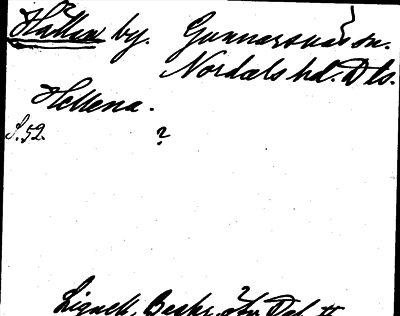 Hällan by. Gunnarsnäs sn.
Nordals hd. Dls.
Hellena.
S. 52. ?
Lignell, Beskr. ö. Dal II